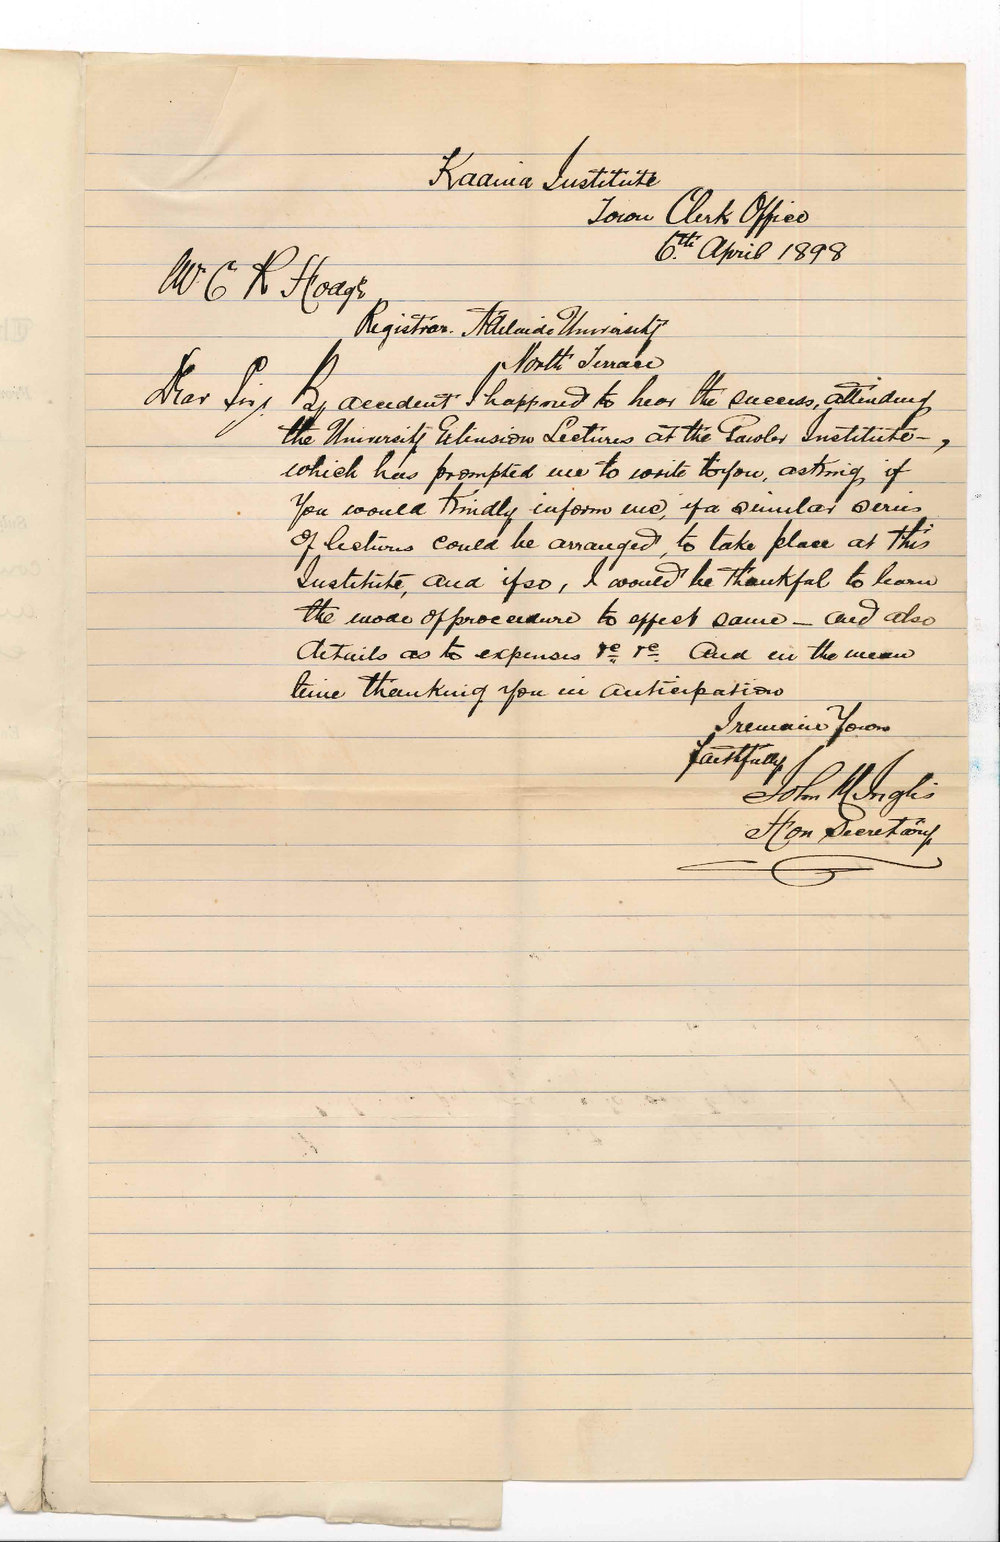 Kadina Institute
Town Clerk Office
6th April 1898
Mr C R Hodge
Registrar. Adelaide University
North Terrace
Dear Sir, By accident I happened to hear the success, attending
the University Extension Lectures at the Gawler Institute—,
which has prompted me to write to you, asking if
You would kindly inform me, if a similar series
of lectures could be arranged, to take place at this
Institute, and if so, I would be thankful to learn
the mode of procedure to effect same — and also
details as to expenses &c &c. And in the mean
time thanking you in anticipation
I remain Yours
faithfully
John M Inglis
Hon Secretary